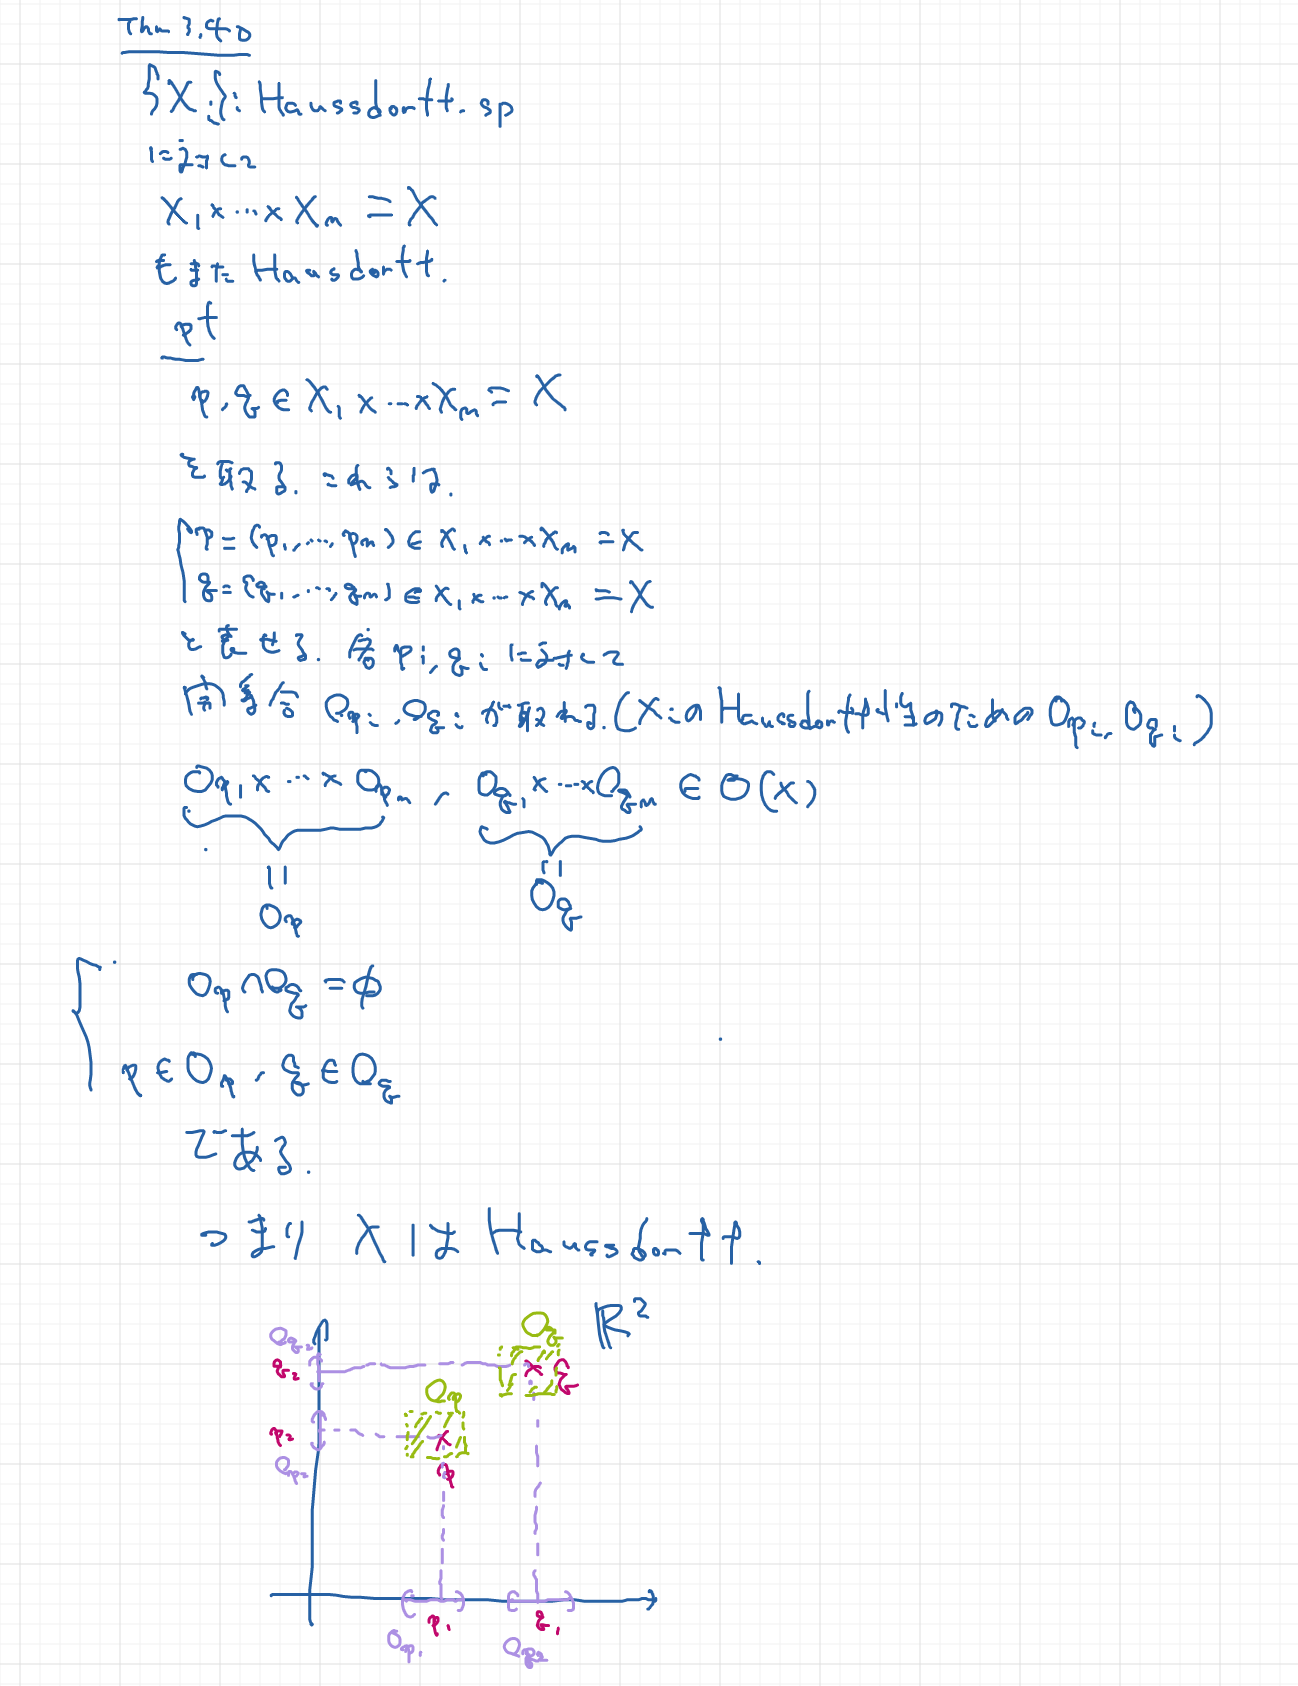 Thm 3.40
{X_i}: Haussdorff. sp
X_1 × ... × X_n = X
もまた Hausdorff.
pf
p, q ∈ X_1 × ... × X_n = X
を取る. これらは.
p = (p_1, ..., p_n) ∈ X_1 × ... × X_n = X
q = (q_1, ..., q_n) ∈ X_1 × ... × X_n = X
と表せる. 各 p_i, q_i
開集合 O_{p_i}, O_{q_i} が取れる. (X_i の Haussdorff性のための O_{p_i}, O_{q_i})
O_{p_1} × ... × O_{p_n}, O_{q_1} × ... × O_{q_n} ∈ O(X)
|| ||
O_p O_q
O_p ∩ O_q = φ
p ∈ O_p, q ∈ O_q
である.
つまり X は Haussdorff.
ℝ^2
O_{q_2} O_q
q_2 q
O_p
p_2
O_{p_2} p
p_1 q_1
O_{p_1} O_{q_2}